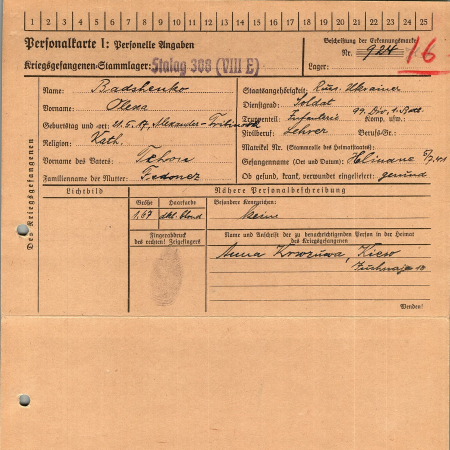 1 2 3 4 5 6 7 8 9 10 11 12 13 14 15 16 17 18 19 20 21 22 23 24 25
Personalkarte I: Personelle Angaben
Kriegsgefangenen-Stammlager: Stalag 308 (VIII E)
Beschriftung der Erkennungsmarke
Nr. 924 16
Lager:
Des Kriegsgefangenen
Name: Badshenko
Vorname: Olexa
Geburtstag und -ort: 21.5.17, Alexander-
Religion: Kath.
Vorname des Vaters:
Familienname der Mutter: Fedonez
Staatsangehörigkeit: Russ. Ukrainer
Dienstgrad: Soldat
Truppenteil: Infanterie 99. Div. Komp. usw.
Zivilberuf: Lehrer Berufs-Gr.
Matrikel Nr. (Stammrolle des Heimatstaates):
Gefangennahme (Ort und Datum):
Ob gesund, krank, verwundet eingeliefert: gesund
Lichtbild
Nähere Personalbeschreibung
Größe Haarfarbe Besondere Kennzeichen:
1,67 dkl. blond keine
Fingerabdruck
des rechten! Zeigefingers
Name und Anschrift der zu benachrichtigenden Person in der Heimat
des Kriegsgefangenen
Anna Kiew
Wenden!